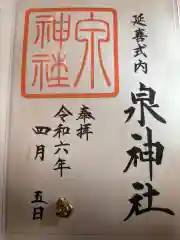 延喜式内
泉神社
奉拝
令和六年
四月
五日
泉
神社